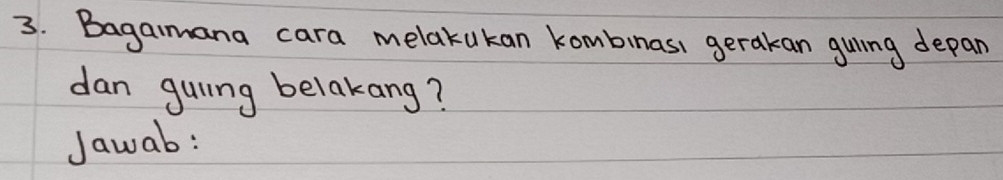 3. Bagaimana cara melakukan kombinasi gerakan guling depan
dan guling belakang?
Jawab: